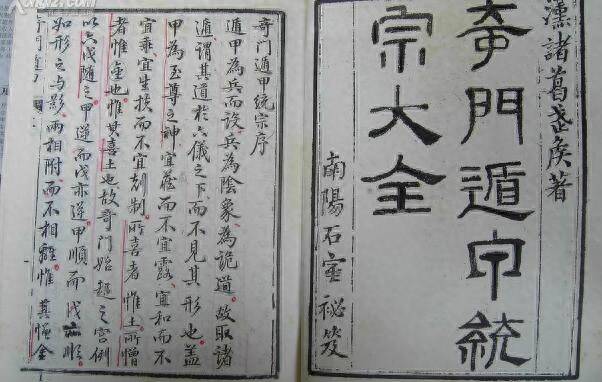 漢諸葛武矦著
奇門遁甲統
宗大全
南陽石室祕笈
奇門遁甲统宗序
遁甲為兵而設兵為陰象為詭道故取諸
遁謂其道於六儀之下而不見其形也蓋
甲為至尊之神宜藏而不宜露宜和而不
宜乖宜生扶而不宜剋制所喜者惟土所憎
者惟金也惟其喜土也故奇門始起之宮例
以六戊隨之甲逆而戊亦逆甲順而戊亦順
如形之与影兩相附而不相離惟其憎金
奇門遁